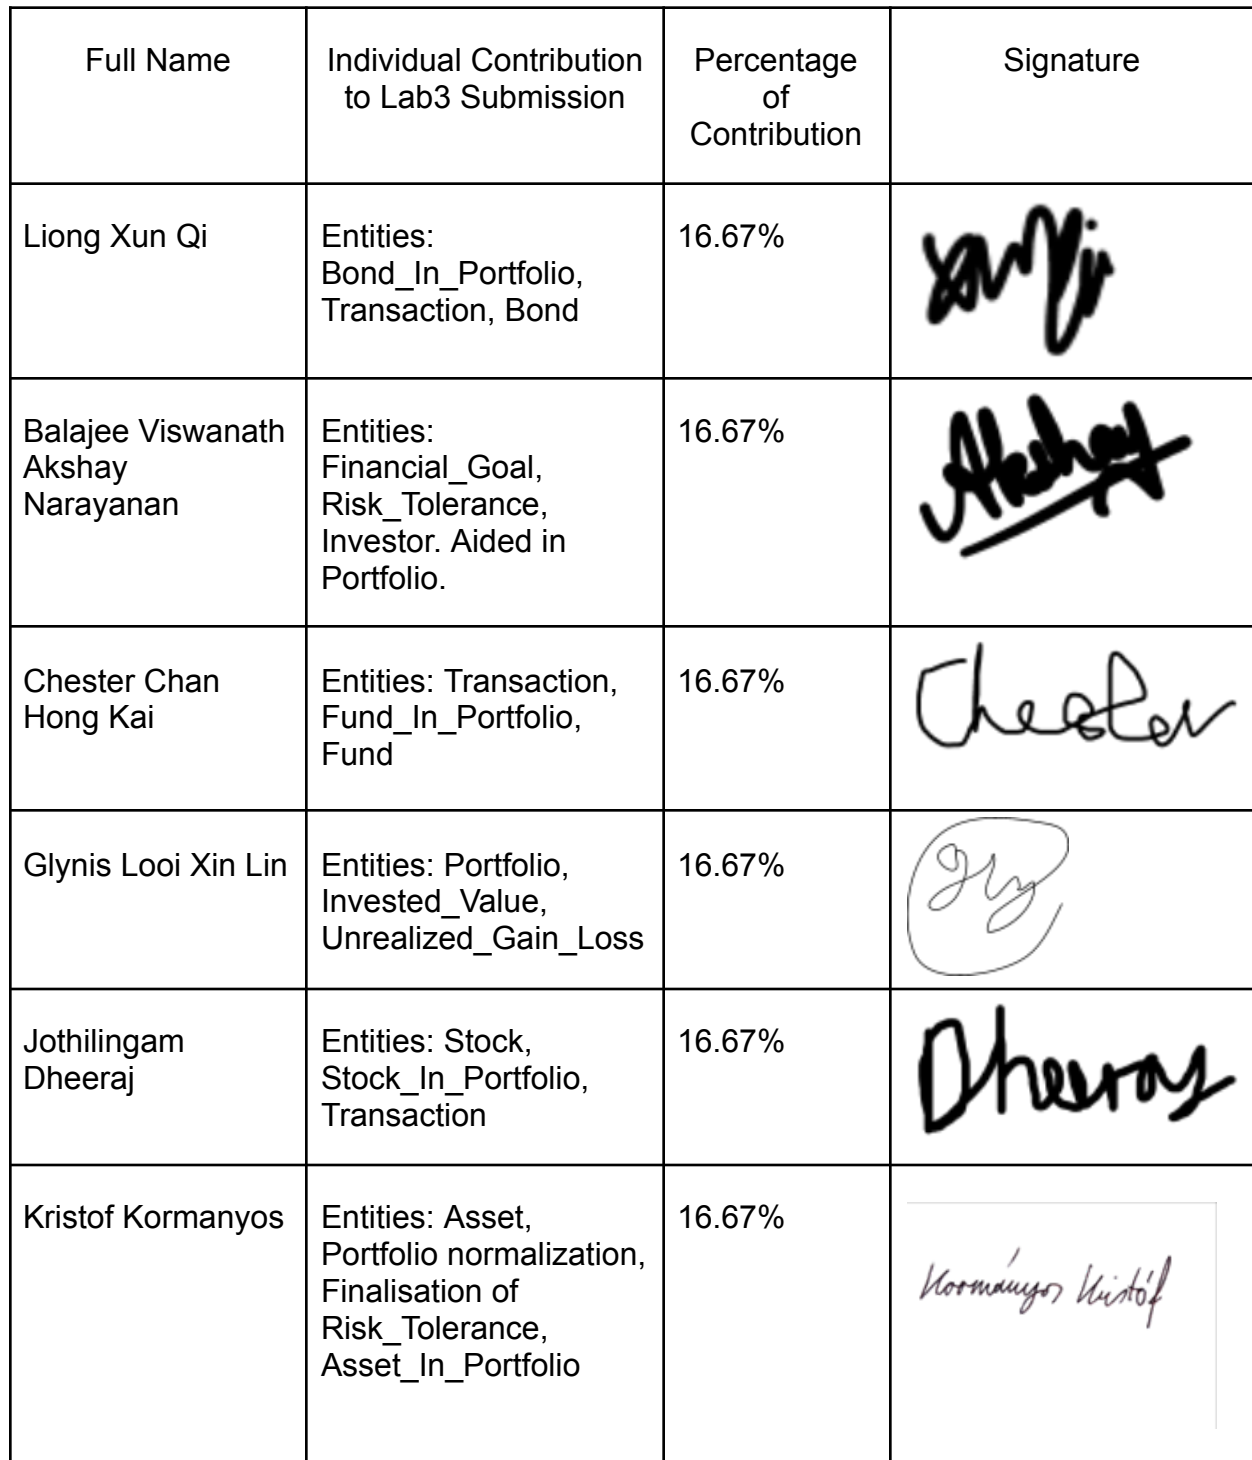 Full Name
Individual Contribution
to Lab3 Submission
Percentage
of
Contribution
Signature
Liong Xun Qi
Entities:
Bond_In_Portfolio,
Transaction, Bond
16.67%
Balajee Viswanath
Akshay
Narayanan
Entities:
Financial_Goal,
Risk_Tolerance,
Investor. Aided in
Portfolio.
16.67%
Akshay
Chester Chan
Hong Kai
Entities: Transaction,
Fund_In_Portfolio,
Fund
16.67%
Chester
Glynis Looi Xin Lin
Entities: Portfolio,
Invested_Value,
Unrealized_Gain_Loss
16.67%
Jothilingam
Dheeraj
Entities: Stock,
Stock_In_Portfolio,
Transaction
16.67%
Dheeraj
Kristof Kormanyos
Entities: Asset,
Portfolio normalization,
Finalisation of
Risk_Tolerance,
Asset_In_Portfolio
16.67%
Kormányos Kristóf